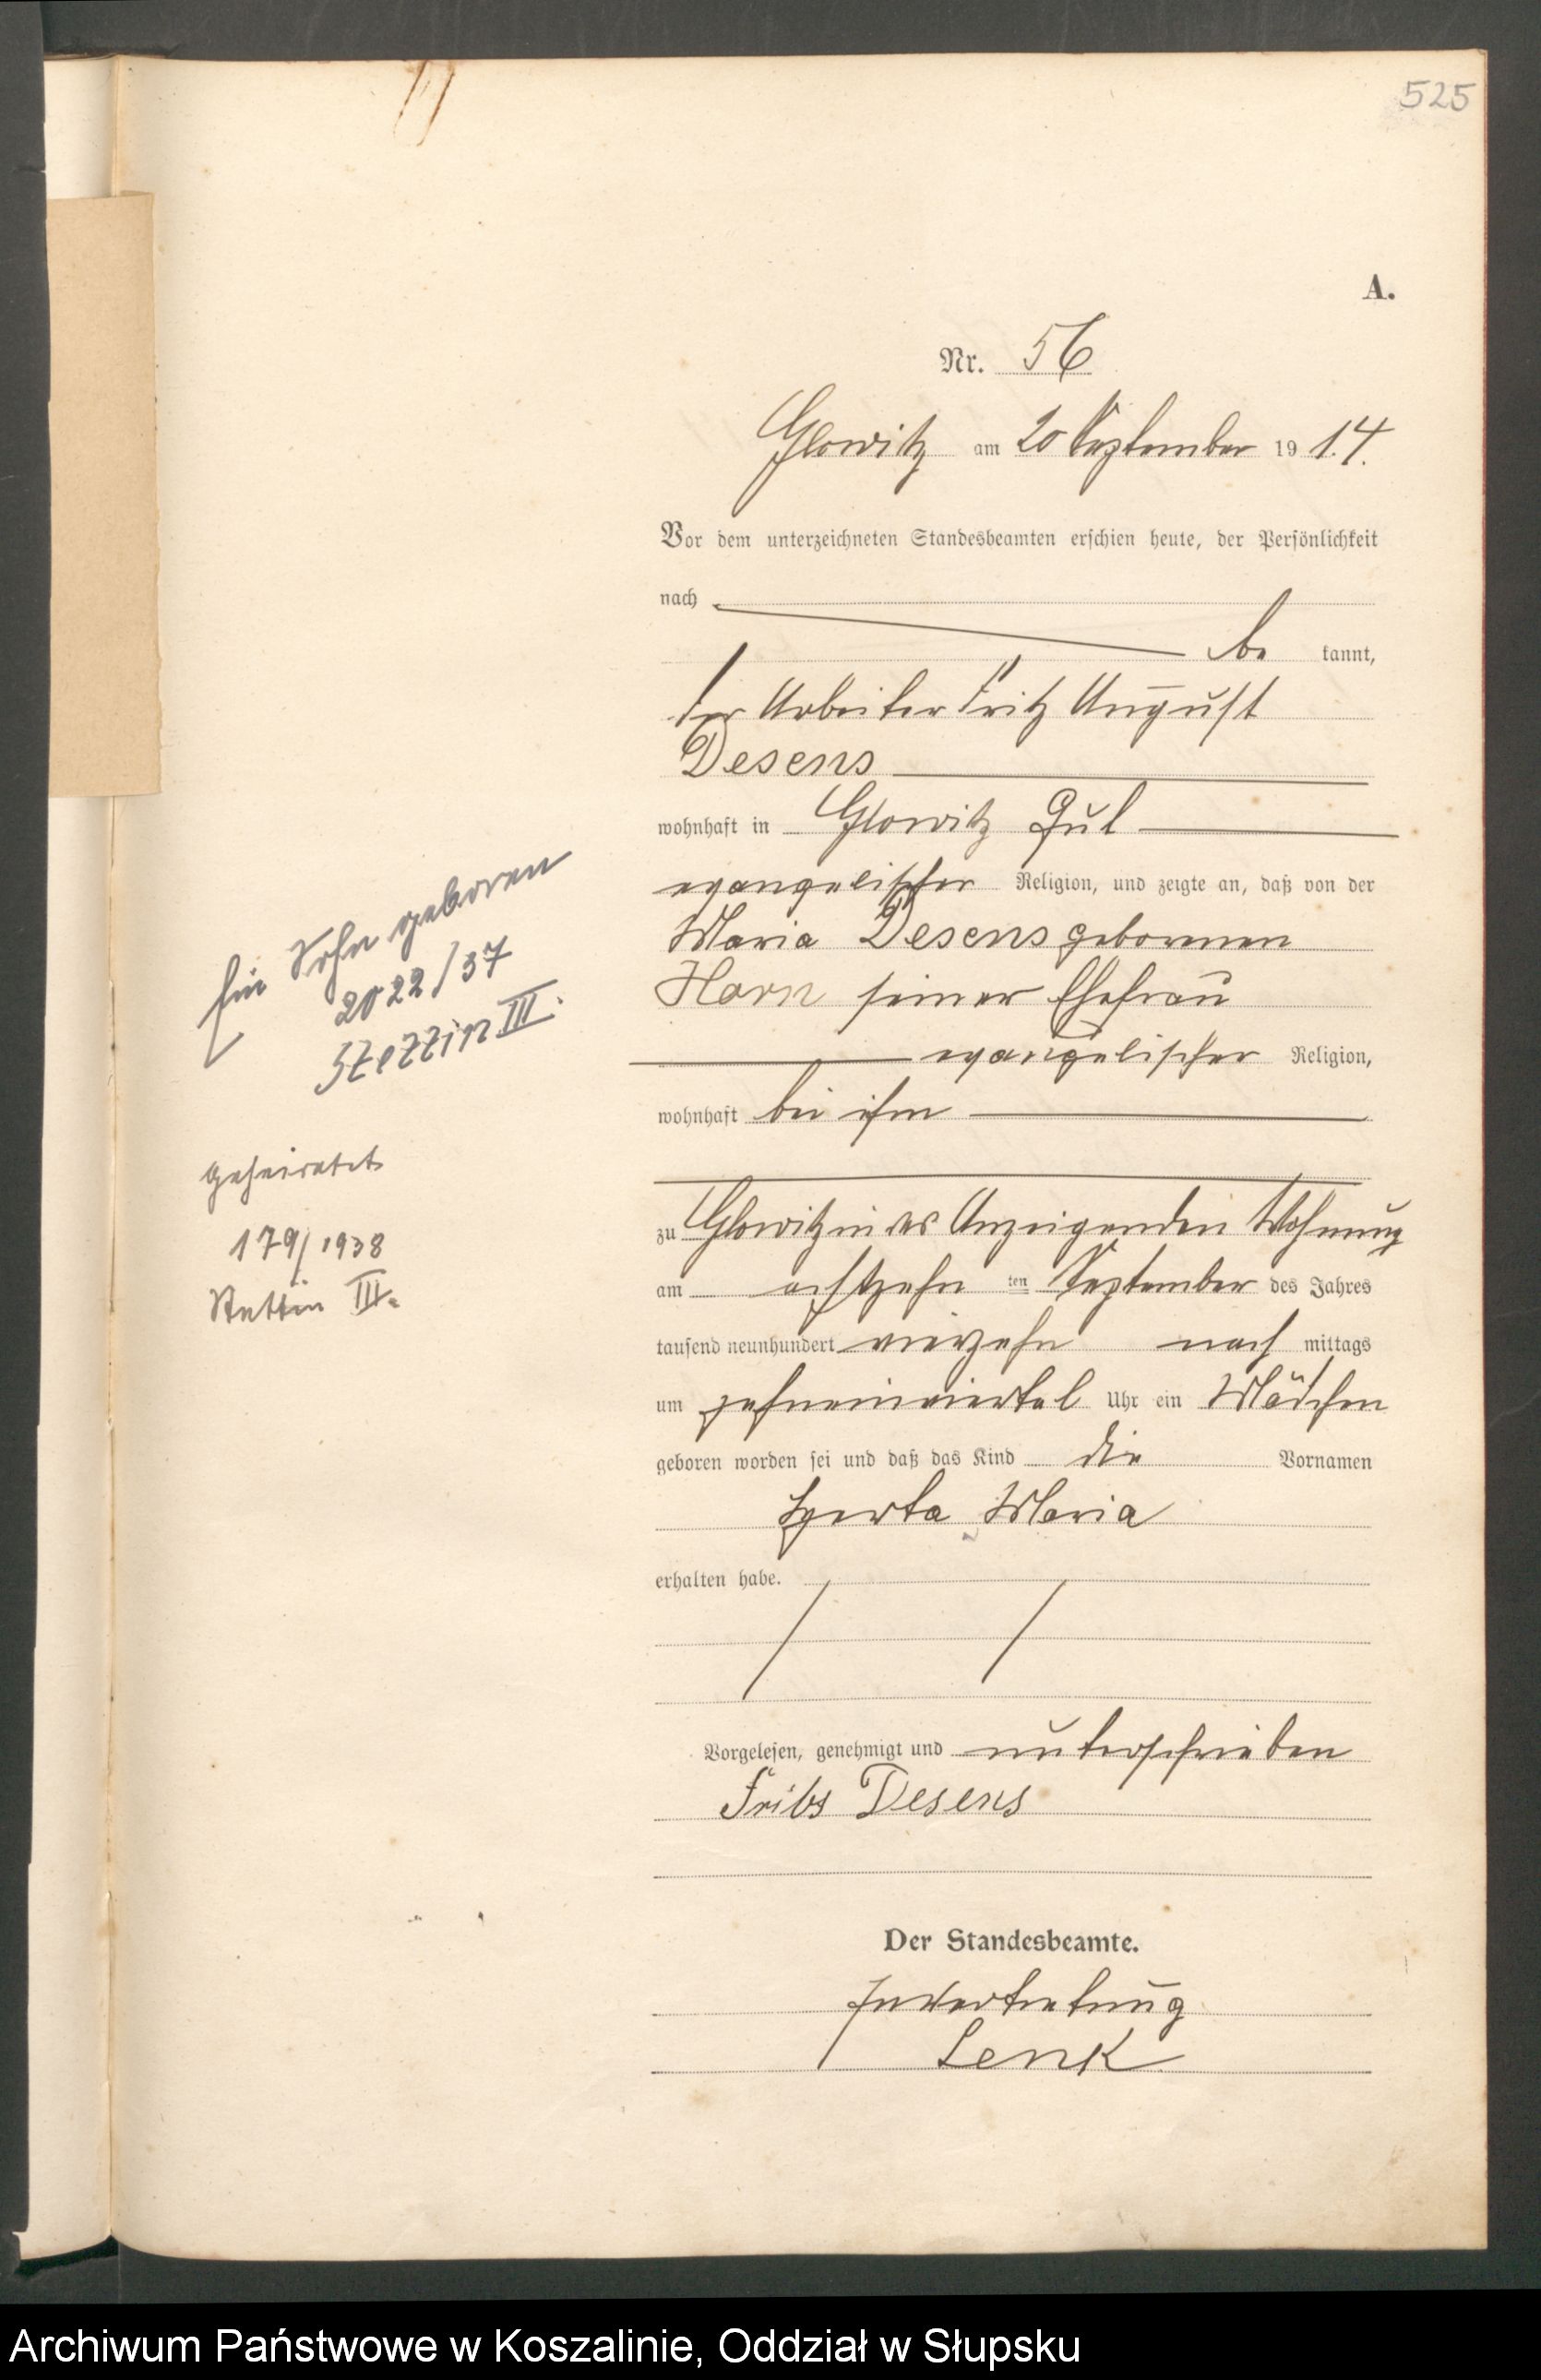 525
A.
Nr. 56
Glowitz am 20 September 19 14.
Vor dem unterzeichneten Standesbeamten erschien heute, der Persönlichkeit
nach
be kannt,
der Arbeiter Fritz August
Desens
wohnhaft in Glowitz Gut
evangelischer Religion, und zeigte an, daß von der
Maria Desens geborenen
Horn seiner Ehefrau
evangelischer Religion,
wohnhaft bei ihm
zu Glowitz in des Anzeigenden Wohnung
am achtzehn ten September des Jahres
tausend neunhundert vierzehn nach mittags
um zehneinviertel Uhr ein Mädchen
geboren worden sei und daß das Kind die Vornamen
Herta Maria
erhalten habe.
Vorgelesen, genehmigt und unterschrieben
Fritz Desens
Der Standesbeamte.
In Vertretung
Lenk
Ein Sohn geboren
2022/37
Stettin III.
geheiratet
179/1938
Stettin III.
Archiwum Państwowe w Koszalinie, Oddział w Słupsku